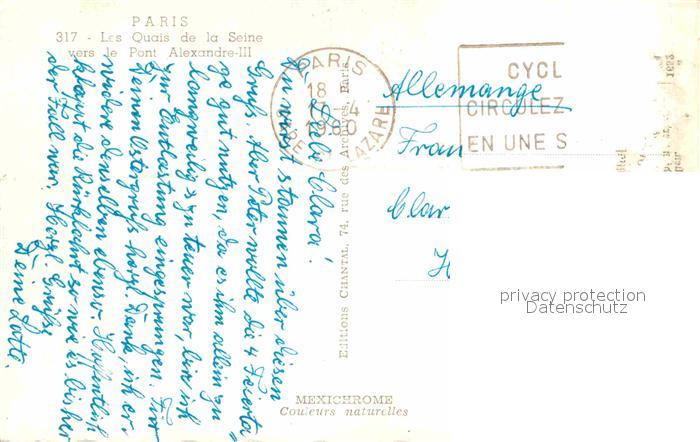 PARIS
317 - Les Quais de la Seine
vers le Pont Alexandre-III
Liebe Clara!
Du wirst staunen über diesen
Gruß. Aber Peter wollte die 4 Feierta-
ge gut nutzen, da es ihm allein zu
langweilig u. zu teuer war, bin ich
zur Entlastung eingesprungen. Für
Deinen Ostergruß herzl. Dank, ich er-
widere denselben ebenso. Hoffentlich
klappt die Rückfahrt so wie es bisher
der Fall war. Herzl. Grüße
Deine Lotte.
Editions CHANTAL, 74, rue des Archives, Paris
PARIS
18
17 -4
1960
GARE ST LAZARE
CYCL
CIRCULEZ
EN UNE S
Allemagne
Frau
Clar
H
privacy protection
Datenschutz
MEXICHROME
Couleurs naturelles